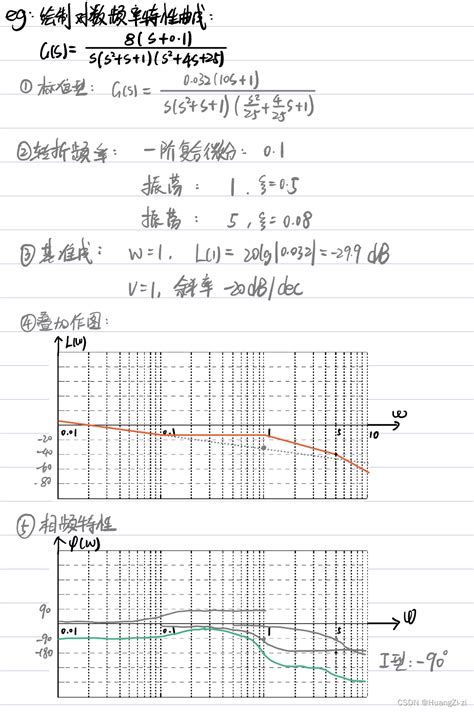 eg: 绘制对数频率特性曲线:
G(s) = 8(s+0.1) / s(s²+s+1)(s²+4s+25)
① 标准型: G(s) = 0.032(10s+1) / s(s²+s+1)(s²/25+4/25 s+1)
②转折频率: 一阶复合微分: 0.1
振荡: 1, ξ=0.5
振荡: 5, ξ=0.08
③基准线: w=1, L(1)=20lg|0.032|=-29.9 dB
V=1, 斜率 -20dB/dec
④叠加作图:
L(w)
0.01 0.1 1 5 10 w
-20
-40
-60
-80
⑤相频特性
φ(w)
90
0.01 0.1 1 5
-90
-180
I型: -90°
CSDN @HuangZi-zi